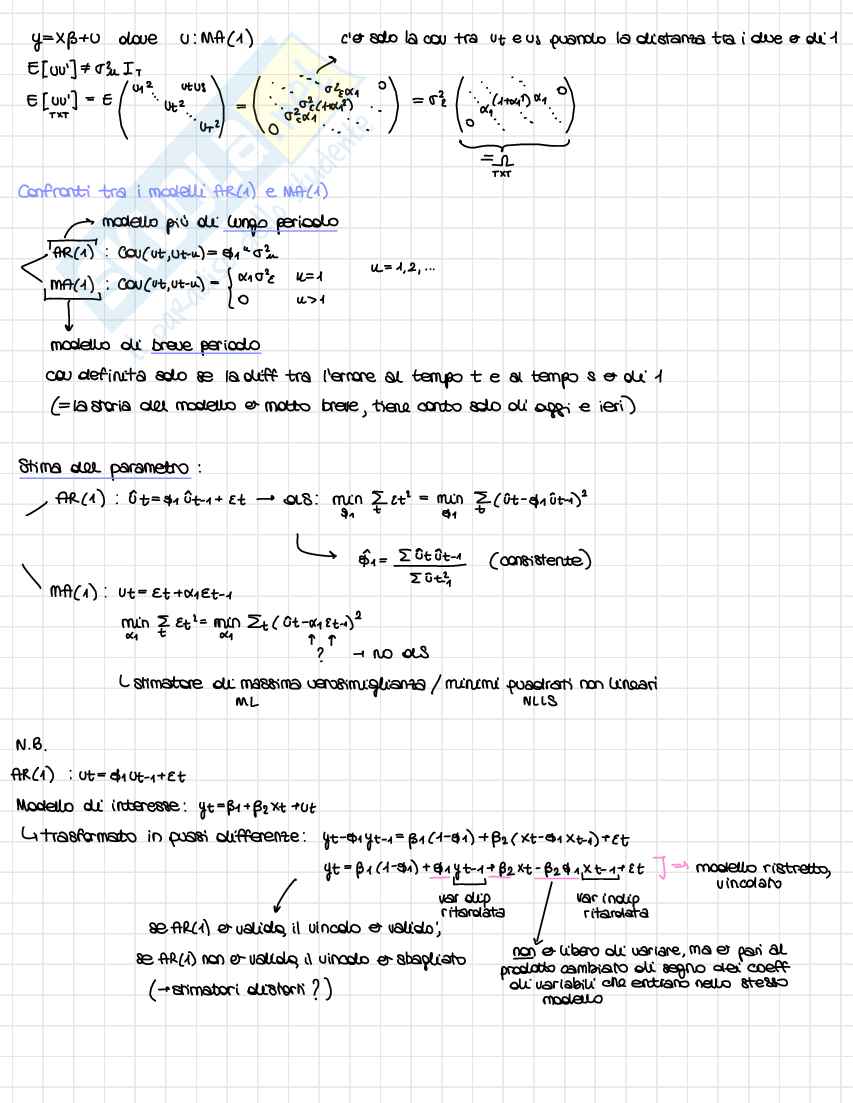 y=Xβ+U dove U:MA(1) c'è solo la cov tra ut e us quando la distanza tra i due è di 1
E[UU'] ≠ σ²u I_T
E[UU'] = E ( u1² utus ut² uT² ) = ( σ²ε α1 0 σ²ε(1+α1²) σ²ε α1 0 ) = σ²ε ( (1+α1²) α1 0 α1 0 )
TXT
= Ω
TXT
Confronti tra i modelli AR(1) e MA(1)
→ modello più di lungo periodo
AR(1) : Cov(ut,ut-k) = ϕ1^k σ²u
k=1,2,...
MA(1) : Cov(ut,ut-k) = { α1 σ²ε k=1
0 k>1
modello di breve periodo
cov definita solo se la diff tra l'errore al tempo t e al tempo s è di 1
(= la storia del modello è molto breve, tiene conto solo di oggi e ieri)
Stima del parametro :
AR(1) : ût = ϕ1 ût-1 + εt → OLS: min ϕ1 Σt εt² = min ϕ1 Σt (ût-ϕ1 ût-1)²
ϕ̂1 = Σ ût ût-1 / Σ û²t-1 (consistente)
MA(1) : ut = εt + α1 εt-1
min α1 Σt εt² = min α1 Σt (ût-α1 εt-1)²
↑ ↑
? → no OLS
↳ stimatore di massima verosimiglianza / minimi quadrati non lineari
ML NLLS
N.B.
AR(1) : ut = ϕ1 ut-1 + εt
Modello di interesse: yt = β1 + β2 xt + ut
↳ trasformato in quasi differenze: yt-ϕ1 yt-1 = β1(1-ϕ1) + β2(xt-ϕ1 xt-1) + εt
yt = β1(1-ϕ1) + ϕ1 yt-1 + β2 xt - β2 ϕ1 xt-1 + εt ] ⇒ modello ristretto,
vincolato
var dip var indip
ritardata ritardata
se AR(1) è valido, il vincolo è valido,
se AR(1) non è valido, il vincolo è sbagliato
(→ stimatori distorti ?)
non è libero di variare, ma è pari al
prodotto cambiato di segno dei coeff
di variabili che entrano nello stesso
modello